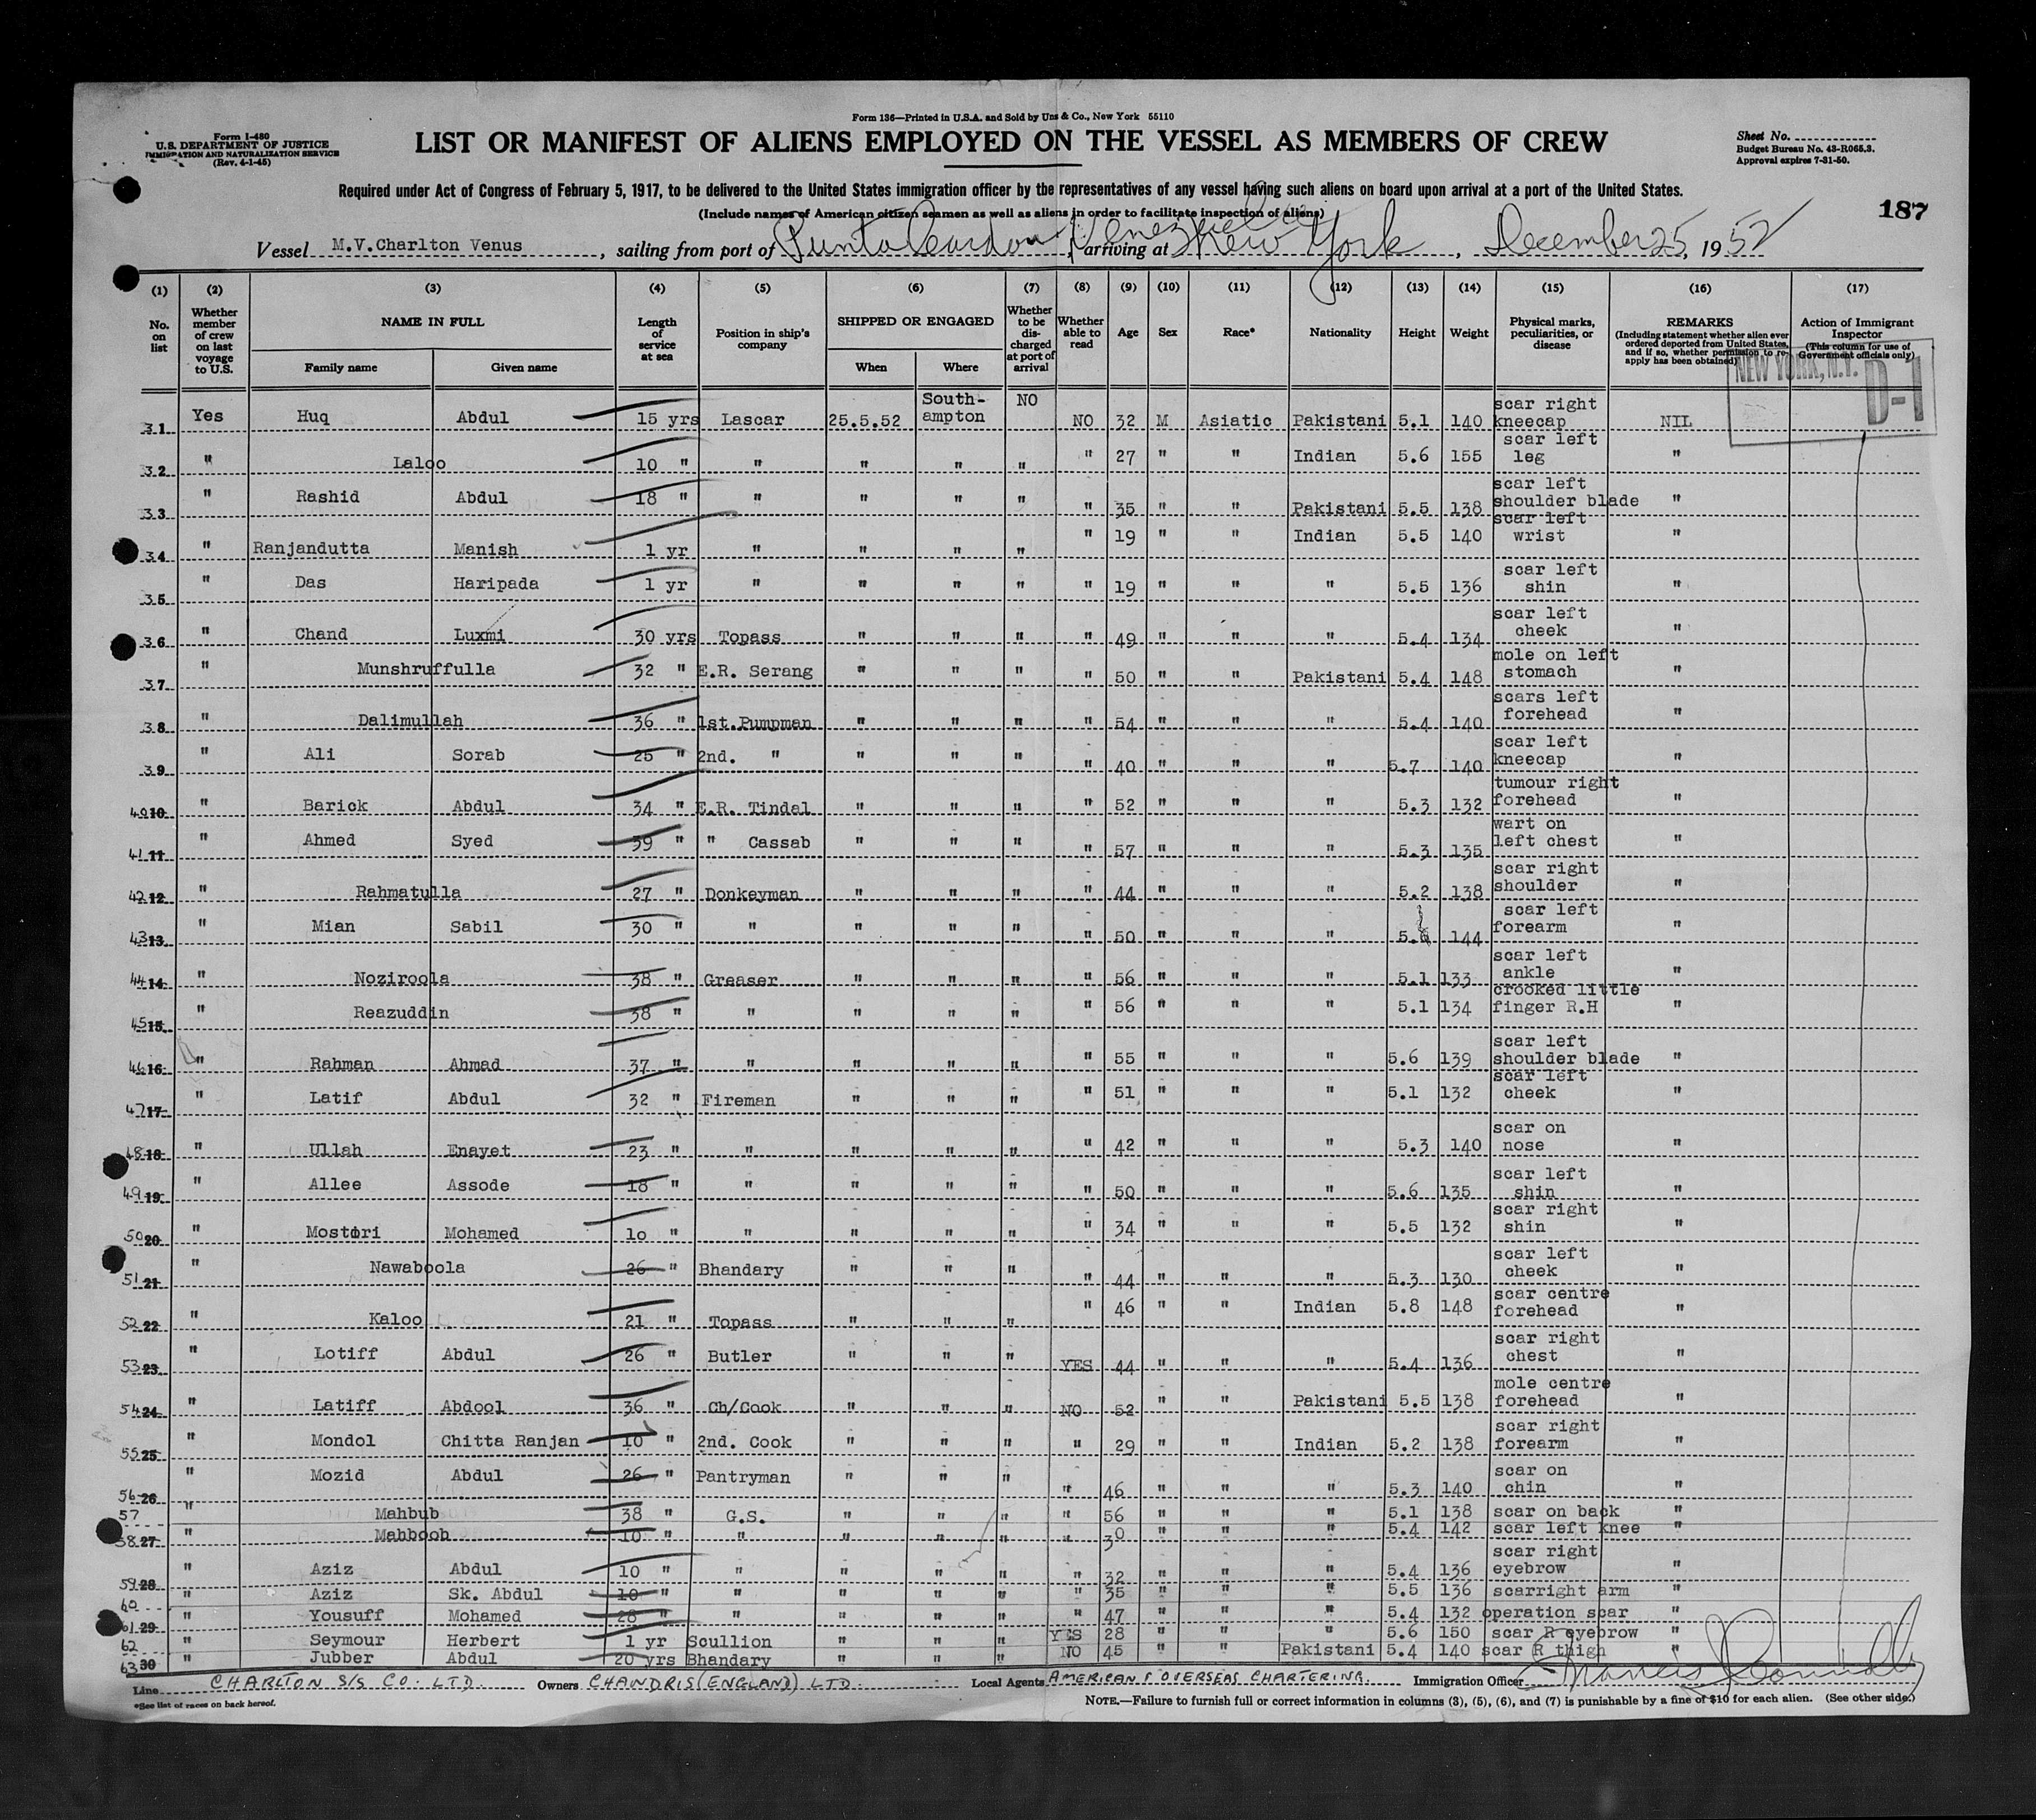 Form 136—Printed in U.S.A. and Sold by Unz & Co., New York 55110
Form I-480
U.S. DEPARTMENT OF JUSTICE
IMMIGRATION AND NATURALIZATION SERVICE
(Rev. 4-1-45)
LIST OR MANIFEST OF ALIENS EMPLOYED ON THE VESSEL AS MEMBERS OF CREW
Sheet No.
Budget Bureau No. 43-R065.3.
Approval expires 7-31-50.
Required under Act of Congress of February 5, 1917, to be delivered to the United States immigration officer by the representatives of any vessel having such aliens on board upon arrival at a port of the United States.
(Include names of American citizen seamen as well as aliens in order to facilitate inspection of aliens)
187
Vessel M.V.Charlton Venus, sailing from port of Punta Cardon, Venezuela, arriving at New York, December 25, 1952
(1) (2) (3) (4) (5) (6) (7) (8) (9) (10) (11) (12) (13) (14) (15) (16) (17)
No. on list
Whether member of crew on last voyage to U.S.
NAME IN FULL
Family name Given name
Length of service at sea
Position in ship's company
SHIPPED OR ENGAGED
When Where
Whether to be discharged at port of arrival
Whether able to read
Age
Sex
Race*
Nationality
Height
Weight
Physical marks, peculiarities, or disease
REMARKS
(Including statement whether alien ever ordered deported from United States, and if so, whether permission to re-apply has been obtained)
Action of Immigrant Inspector
(This column for use of Government officials only)
NEW YORK, N.Y. D-1
31 Yes Huq Abdul 15 yrs Lascar 25.5.52 South-ampton NO NO 32 M Asiatic Pakistani 5.1 140 scar right kneecap NIL
32 " Laloo 10 " " " " " " 27 " " Indian 5.6 155 scar left leg "
33 " Rashid Abdul 18 " " " " " " 35 " " Pakistani 5.5 138 scar left shoulder blade "
34 " Ranjandutta Manish 1 yr " " " " " 19 " " Indian 5.5 140 scar left wrist "
35 " Das Haripada 1 yr " " " " " 19 " " " 5.5 136 scar left shin "
36 " Chand Luxmi 30 yrs Topass " " " " 49 " " " 5.4 134 scar left cheek "
37 " Munshruffulla 32 " E.R. Serang " " " " 50 " " Pakistani 5.4 148 mole on left stomach "
38 " Dalimullah 36 " 1st.Pumpman " " " " 54 " " " 5.4 140 scars left forehead "
39 " Ali Sorab 25 " 2nd. " " " " " 40 " " " 5.7 140 scar left kneecap "
40 10 " Barick Abdul 34 " E.R. Tindal " " " " 52 " " " 5.3 132 tumour right forehead "
41 11 " Ahmed Syed 39 " " Cassab " " " " 57 " " " 5.3 135 wart on left chest "
42 12 " Rahmatulla 27 " Donkeyman " " " " 44 " " " 5.2 138 scar right shoulder "
43 13 " Mian Sabil 30 " " " " " " 50 " " " 5.6 144 scar left forearm "
44 14 " Noziroola 38 " Greaser " " " " 56 " " " 5.1 133 scar left ankle "
45 15 " Reazuddin 38 " " " " " " 56 " " " 5.1 134 crooked little finger R.H "
46 16 " Rahman Ahmad 37 " " " " " " 55 " " " 5.6 139 scar left shoulder blade "
47 17 " Latif Abdul 32 " Fireman " " " " 51 " " " 5.1 132 scar left cheek "
48 18 " Ullah Enayet 23 " " " " " " 42 " " " 5.3 140 scar on nose "
49 19 " Allee Assode 18 " " " " " " 50 " " " 5.6 135 scar left shin "
50 20 " Mostori Mohamed 10 " " " " " " 34 " " " 5.5 132 scar right shin "
51 21 " Nawaboola 26 " Bhandary " " " " 44 " " " 5.3 130 scar left cheek "
52 22 " Kaloo 21 " Topass " " " " 46 " " Indian 5.8 148 scar centre forehead "
53 23 " Lotiff Abdul 26 " Butler " " " YES 44 " " " 5.4 136 scar right chest "
54 24 " Latiff Abdool 36 " Ch/Cook " " " NO 52 " " Pakistani 5.5 138 mole centre forehead "
55 25 " Mondol Chitta Ranjan 10 " 2nd. Cook " " " " 29 " " Indian 5.2 138 scar right forearm "
56 26 " Mozid Abdul 26 " Pantryman " " " " 46 " " " 5.3 140 scar on chin "
57 " Mahbub 38 " G.S. " " " " 56 " " " 5.1 138 scar on back "
58 27 " Mahboob 10 " " " " " " 30 " " " 5.4 142 scar left knee "
59 28 " Aziz Abdul 10 " " " " " " 32 " " " 5.4 136 scar right eyebrow "
60 " Aziz Sk. Abdul 10 " " " " " " 35 " " " 5.5 136 scarright arm "
61 29 " Yousuff Mohamed 28 " " " " " " 47 " " " 5.4 132 operation scar "
62 " Seymour Herbert 1 yr Scullion " " " YES 28 " " " 5.6 150 scar R eyebrow "
63 30 " Jubber Abdul 20 yrs Bhandary " " " NO 45 " " Pakistani 5.4 140 scar R thigh "
Line CHARLTON S/S CO. LTD. Owners CHANDRIS (ENGLAND) LTD. Local Agents AMERICAN & OVERSEAS CHARTERING. Immigration Officer Francis Connolly
*See list of races on back hereof.
NOTE.—Failure to furnish full or correct information in columns (3), (5), (6), and (7) is punishable by a fine of $10 for each alien. (See other side.)